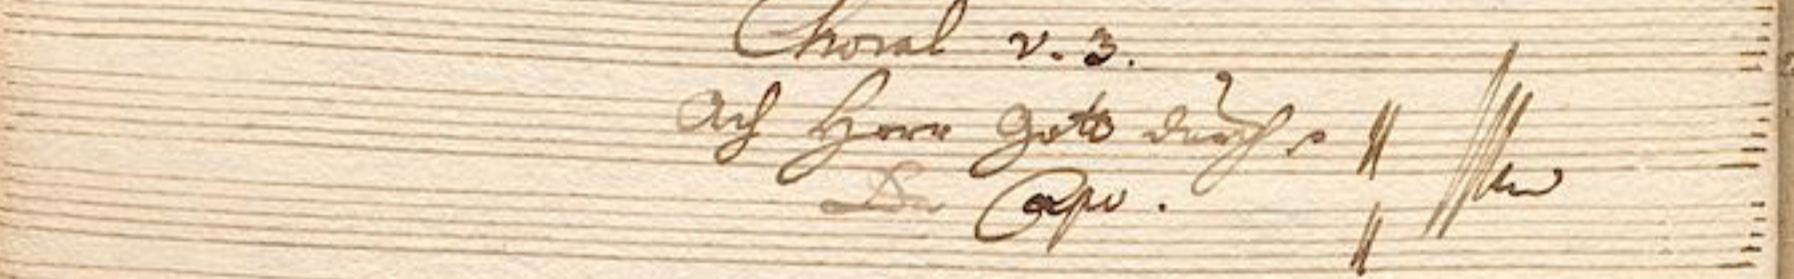 Choral v. 3.
Ach Herr Gott durch
Da Capo.